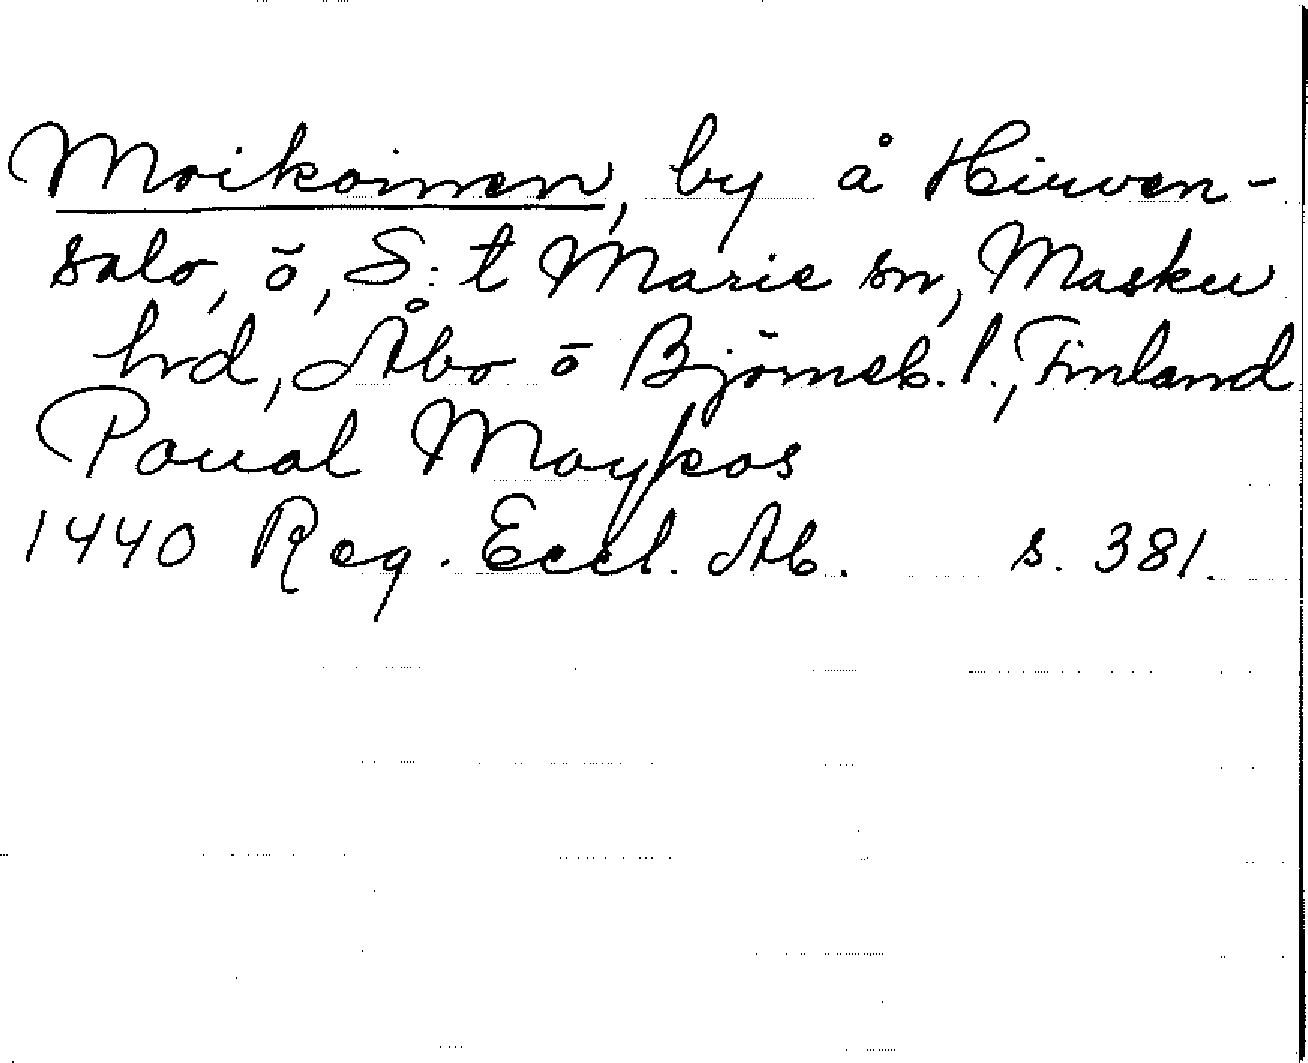 Moikoinen, by å Hirven-
salo, ö, S:t Marie sn, Masku
hrd, Åbo o Björneb. l., Finland
Poual Moykos
1440 Reg. Eccl. Ab. s. 381.